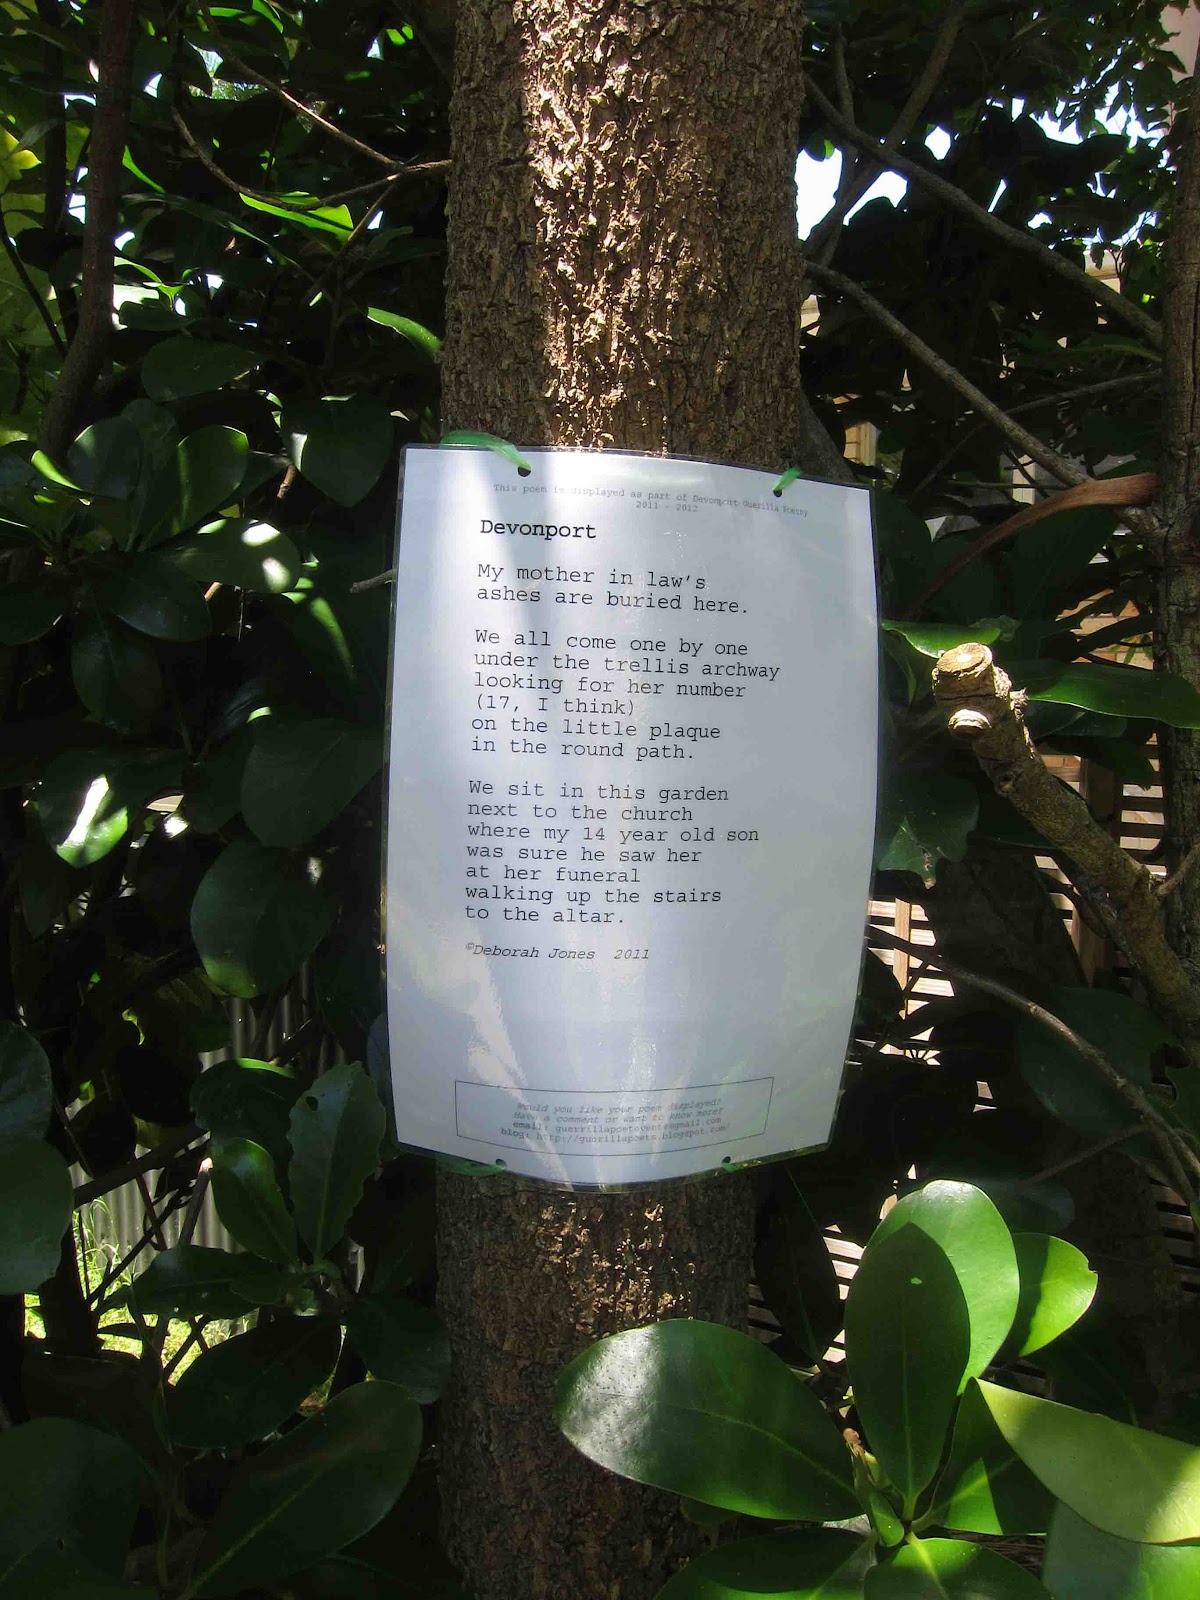 This poem is displayed as part of Devonport Guerilla Poetry
2011 - 2012
Devonport
My mother in law's
ashes are buried here.
We all come one by one
under the trellis archway
looking for her number
(17, I think)
on the little plaque
in the round path.
We sit in this garden
next to the church
where my 14 year old son
was sure he saw her
at her funeral
walking up the stairs
to the altar.
©Deborah Jones 2011
Would you like your poem displayed?
Have a comment or want to know more?
email:
blog: